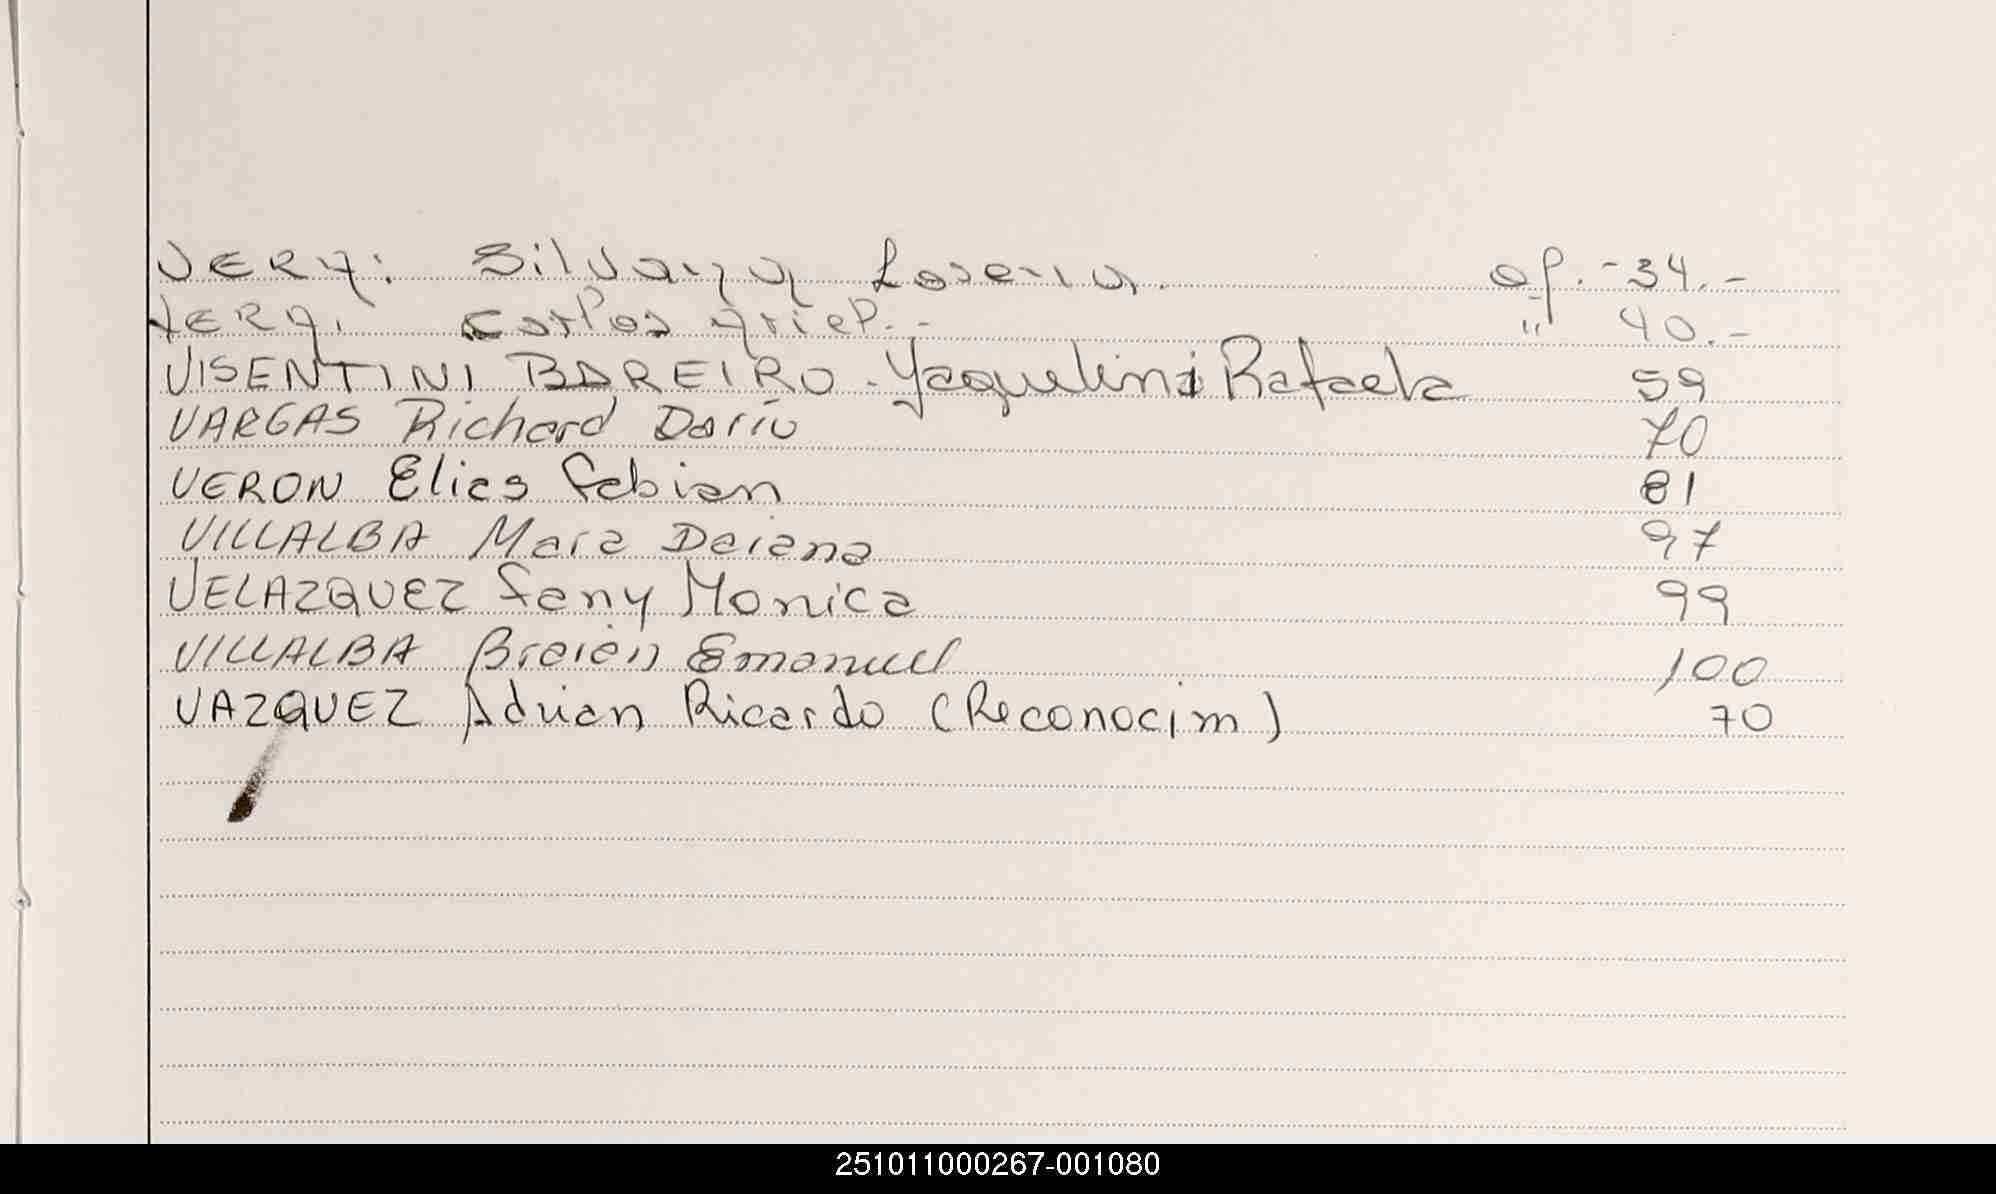 VERA: Silvana Lorena. af.-34.-
VERA. Carlos Ariel.- " 40.-
VISENTINI BAREIRO - Yaquelini Rafaela 59
VARGAS Richard Dario 70
VERON Elias Fabian 81
VILLALBA Mara Daiana 97
VELAZQUEZ Fany Monica 99
VILLALBA Braian Emanuel 100
VAZQUEZ Adrian Ricardo (Reconocim) 70
251011000267-001080